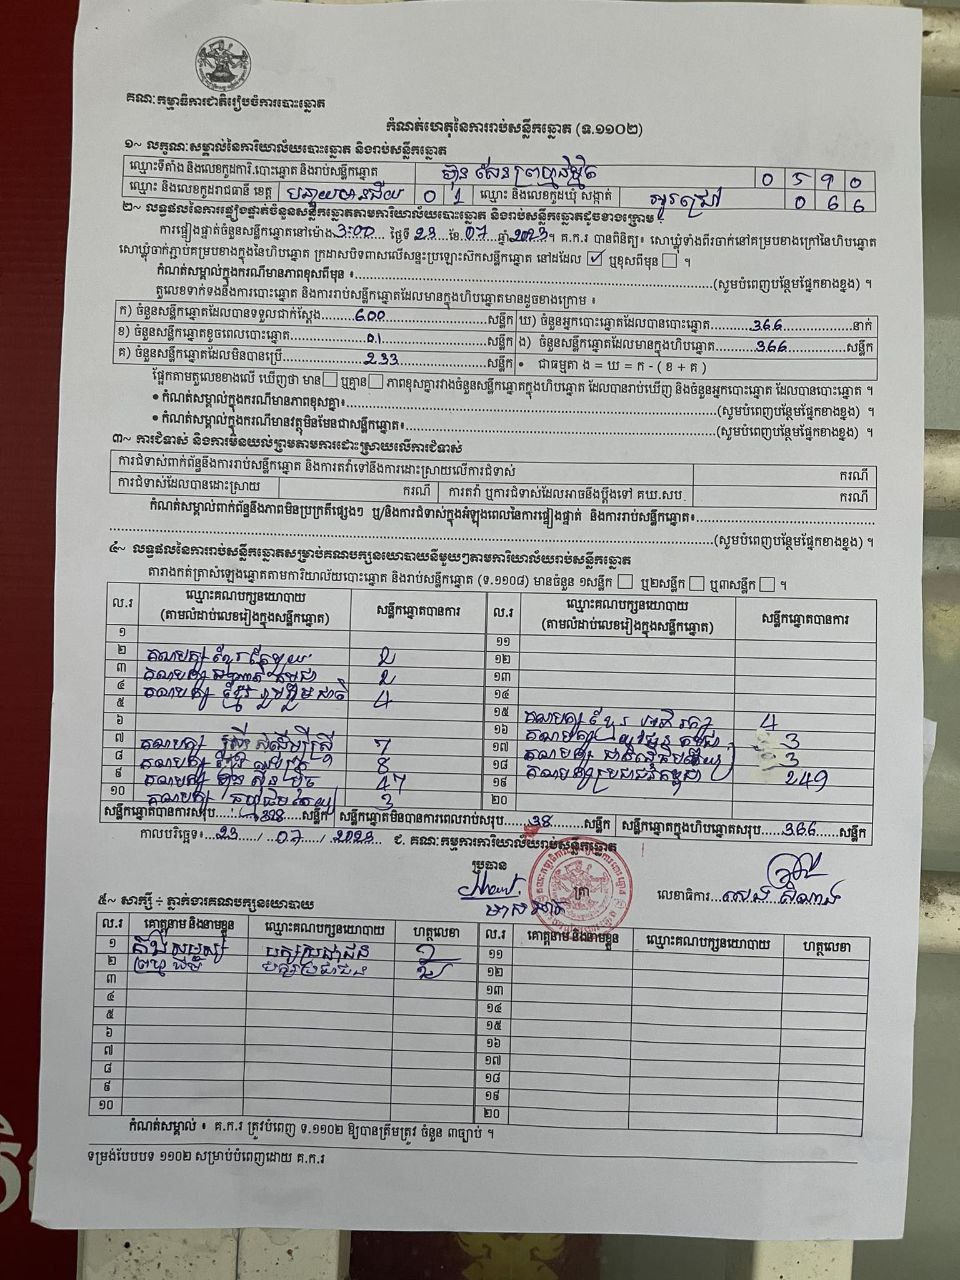 គណៈកម្មាធិការជាតិរៀបចំការបោះឆ្នោត
កំណត់ហេតុនៃការរាប់សន្លឹកឆ្នោត (ទ.១១០២)
១~ លក្ខណៈសម្គាល់នៃការិយាល័យបោះឆ្នោត និងរាប់សន្លឹកឆ្នោត
ឈ្មោះទីតាំង និងលេខកូដការិ.បោះឆ្នោត និងរាប់សន្លឹកឆ្នោត ប៊ុន រ៉ែន 0 5 9 0
ឈ្មោះ និងលេខកូដរាជធានី ខេត្ត បន្ទាយមានជ័យ 0 1 ឈ្មោះ និងលេខកូដឃុំ សង្កាត់ អូរជ្រៅ 0 6 6
២~ លទ្ធផលនៃការផ្ទៀងផ្ទាត់ចំនួនសន្លឹកឆ្នោតតាមការិយាល័យបោះឆ្នោត និងរាប់សន្លឹកឆ្នោតដូចខាងក្រោម ៖
ការផ្ទៀងផ្ទាត់ចំនួនសន្លឹកឆ្នោតនៅម៉ោង 3:00 ថ្ងៃទី 23 ខែ 07 ឆ្នាំ 2023។ គ.ក.រ បានពិនិត្យ៖ សោឃ្លុំទាំងពីរចាក់នៅគម្របខាងក្រៅនៃហិបឆ្នោត
សោឃ្លុំចាក់ភ្ជាប់គម្របខាងក្នុងនៃហិបឆ្នោត ក្រដាសបិទពាសលើសន្ទះប្រឡោះសិកសន្លឹកឆ្នោត នៅដដែល ✓ ឬខុសពីមុន ។
កំណត់សម្គាល់ក្នុងករណីមានភាពខុសពីមុន ៖ (សូមបំពេញបន្ថែមផ្នែកខាងខ្នង) ។
តួលេខទាក់ទងនឹងការបោះឆ្នោត និងការរាប់សន្លឹកឆ្នោតដែលមានក្នុងហិបឆ្នោតមានដូចខាងក្រោម ៖
ក) ចំនួនសន្លឹកឆ្នោតដែលបានទទួលជាក់ស្តែង 600 សន្លឹក ឃ) ចំនួនអ្នកបោះឆ្នោតដែលបានបោះឆ្នោត 366 នាក់
ខ) ចំនួនសន្លឹកឆ្នោតខូចពេលបោះឆ្នោត 01 សន្លឹក ង) ចំនួនសន្លឹកឆ្នោតដែលមានក្នុងហិបឆ្នោត 366 សន្លឹក
គ) ចំនួនសន្លឹកឆ្នោតដែលមិនបានប្រើ 233 សន្លឹក • ជាធម្មតា ង = ឃ = ក - ( ខ + គ )
ផ្អែកតាមតួលេខខាងលើ ឃើញថា មាន ឬគ្មាន ភាពខុសគ្នារវាងចំនួនសន្លឹកឆ្នោតក្នុងហិបឆ្នោត ដែលបានរាប់ឃើញ និងចំនួនអ្នកបោះឆ្នោត ដែលបានបោះឆ្នោត ។
• កំណត់សម្គាល់ក្នុងករណីមានភាពខុសគ្នា៖ (សូមបំពេញបន្ថែមផ្នែកខាងខ្នង) ។
• កំណត់សម្គាល់ក្នុងករណីមានវត្ថុមិនមែនជាសន្លឹកឆ្នោត៖ (សូមបំពេញបន្ថែមផ្នែកខាងខ្នង) ។
៣~ ការជំទាស់ និងការមិនយល់ព្រមតាមការដោះស្រាយលើការជំទាស់
ការជំទាស់ពាក់ព័ន្ធនឹងការរាប់សន្លឹកឆ្នោត និងការតវ៉ាទៅនឹងការដោះស្រាយលើការជំទាស់ ករណី
ការជំទាស់ដែលបានដោះស្រាយ ករណី ការតវ៉ា ឬការជំទាស់ដែលអាចនឹងប្តឹងទៅ គឃ.សប. ករណី
កំណត់សម្គាល់ពាក់ព័ន្ធនឹងភាពមិនប្រក្រតីផ្សេងៗ ឬ/និងការជំទាស់ក្នុងអំឡុងពេលនៃការផ្ទៀងផ្ទាត់ និងការរាប់សន្លឹកឆ្នោត៖
(សូមបំពេញបន្ថែមផ្នែកខាងខ្នង) ។
៤~ លទ្ធផលនៃការរាប់សន្លឹកឆ្នោតសម្រាប់គណបក្សនយោបាយនីមួយៗតាមការិយាល័យរាប់សន្លឹកឆ្នោត
តារាងកត់ត្រាសំឡេងឆ្នោតតាមការិយាល័យបោះឆ្នោត និងរាប់សន្លឹកឆ្នោត (ទ.១១០៨) មានចំនួន ១សន្លឹក ឬ២សន្លឹក ឬ៣សន្លឹក ។
ល.រ ឈ្មោះគណបក្សនយោបាយ (តាមលំដាប់លេខរៀងក្នុងសន្លឹកឆ្នោត) សន្លឹកឆ្នោតបានការ ល.រ ឈ្មោះគណបក្សនយោបាយ (តាមលំដាប់លេខរៀងក្នុងសន្លឹកឆ្នោត) សន្លឹកឆ្នោតបានការ
១ ១១
២ គណបក្ស ខ្មែរ 2 ១២
៣ គណបក្ស កម្ពុជា 2 ១៣
៤ គណបក្ស ខ្មែរ រួបរួមជាតិ 4 ១៤
៥ ១៥ គណបក្ស ខ្មែរ 4
៦ ១៦ គណបក្ស កម្ពុជា 3
៧ គណបក្ស ស្ត្រីដើម្បីស្ត្រី 7 ១៧ គណបក្ស 3
៨ គណបក្ស 8 ១៨ គណបក្សប្រជាជនកម្ពុជា 249
៩ គណបក្ស ហ៊្វុនស៊ិនប៉ិច 47 ១៩
១០ គណបក្ស 3 ២០
សន្លឹកឆ្នោតបានការសរុប 328 សន្លឹក សន្លឹកឆ្នោតមិនបានការពេលរាប់សរុប 38 សន្លឹក សន្លឹកឆ្នោតក្នុងហិបឆ្នោតសរុប 366 សន្លឹក
កាលបរិច្ឆេទ៖ 23 / 07 / 2023 ជ. គណៈកម្មការការិយាល័យរាប់សន្លឹកឆ្នោត
ប្រធាន ត្រា លេខាធិការ
៥~ សាក្សី ÷ ភ្នាក់ងារគណបក្សនយោបាយ
ល.រ គោត្តនាម និងនាមខ្លួន ឈ្មោះគណបក្សនយោបាយ ហត្ថលេខា ល.រ គោត្តនាម និងនាមខ្លួន ឈ្មោះគណបក្សនយោបាយ ហត្ថលេខា
១ បក្សប្រជាជន ១១
២ បក្សប្រជាជន ១២
៣ ១៣
៤ ១៤
៥ ១៥
៦ ១៦
៧ ១៧
៨ ១៨
៩ ១៩
១០ ២០
កំណត់សម្គាល់ ៖ គ.ក.រ ត្រូវបំពេញ ទ.១១០២ ឱ្យបានត្រឹមត្រូវ ចំនួន ៣ច្បាប់ ។
ទម្រង់បែបបទ ១១០២ សម្រាប់បំពេញដោយ គ.ក.រ